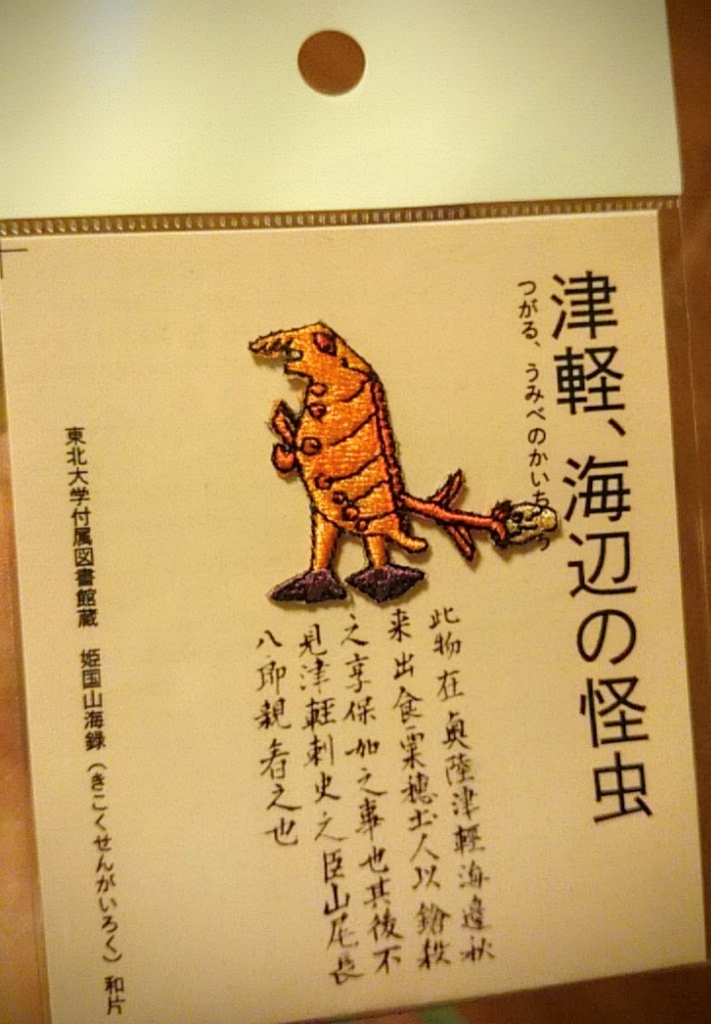 津軽、海辺の怪虫
つがる、うみべのかいち う
此物在奥陸津軽海邉秋
来出食粟穂土人以鎗殺
之享保加之事也其後不
見津軽刺史之臣山尾長
八郎親看之也
東北大学付属図書館蔵 姫国山海録（きこくせんがいろく）和片